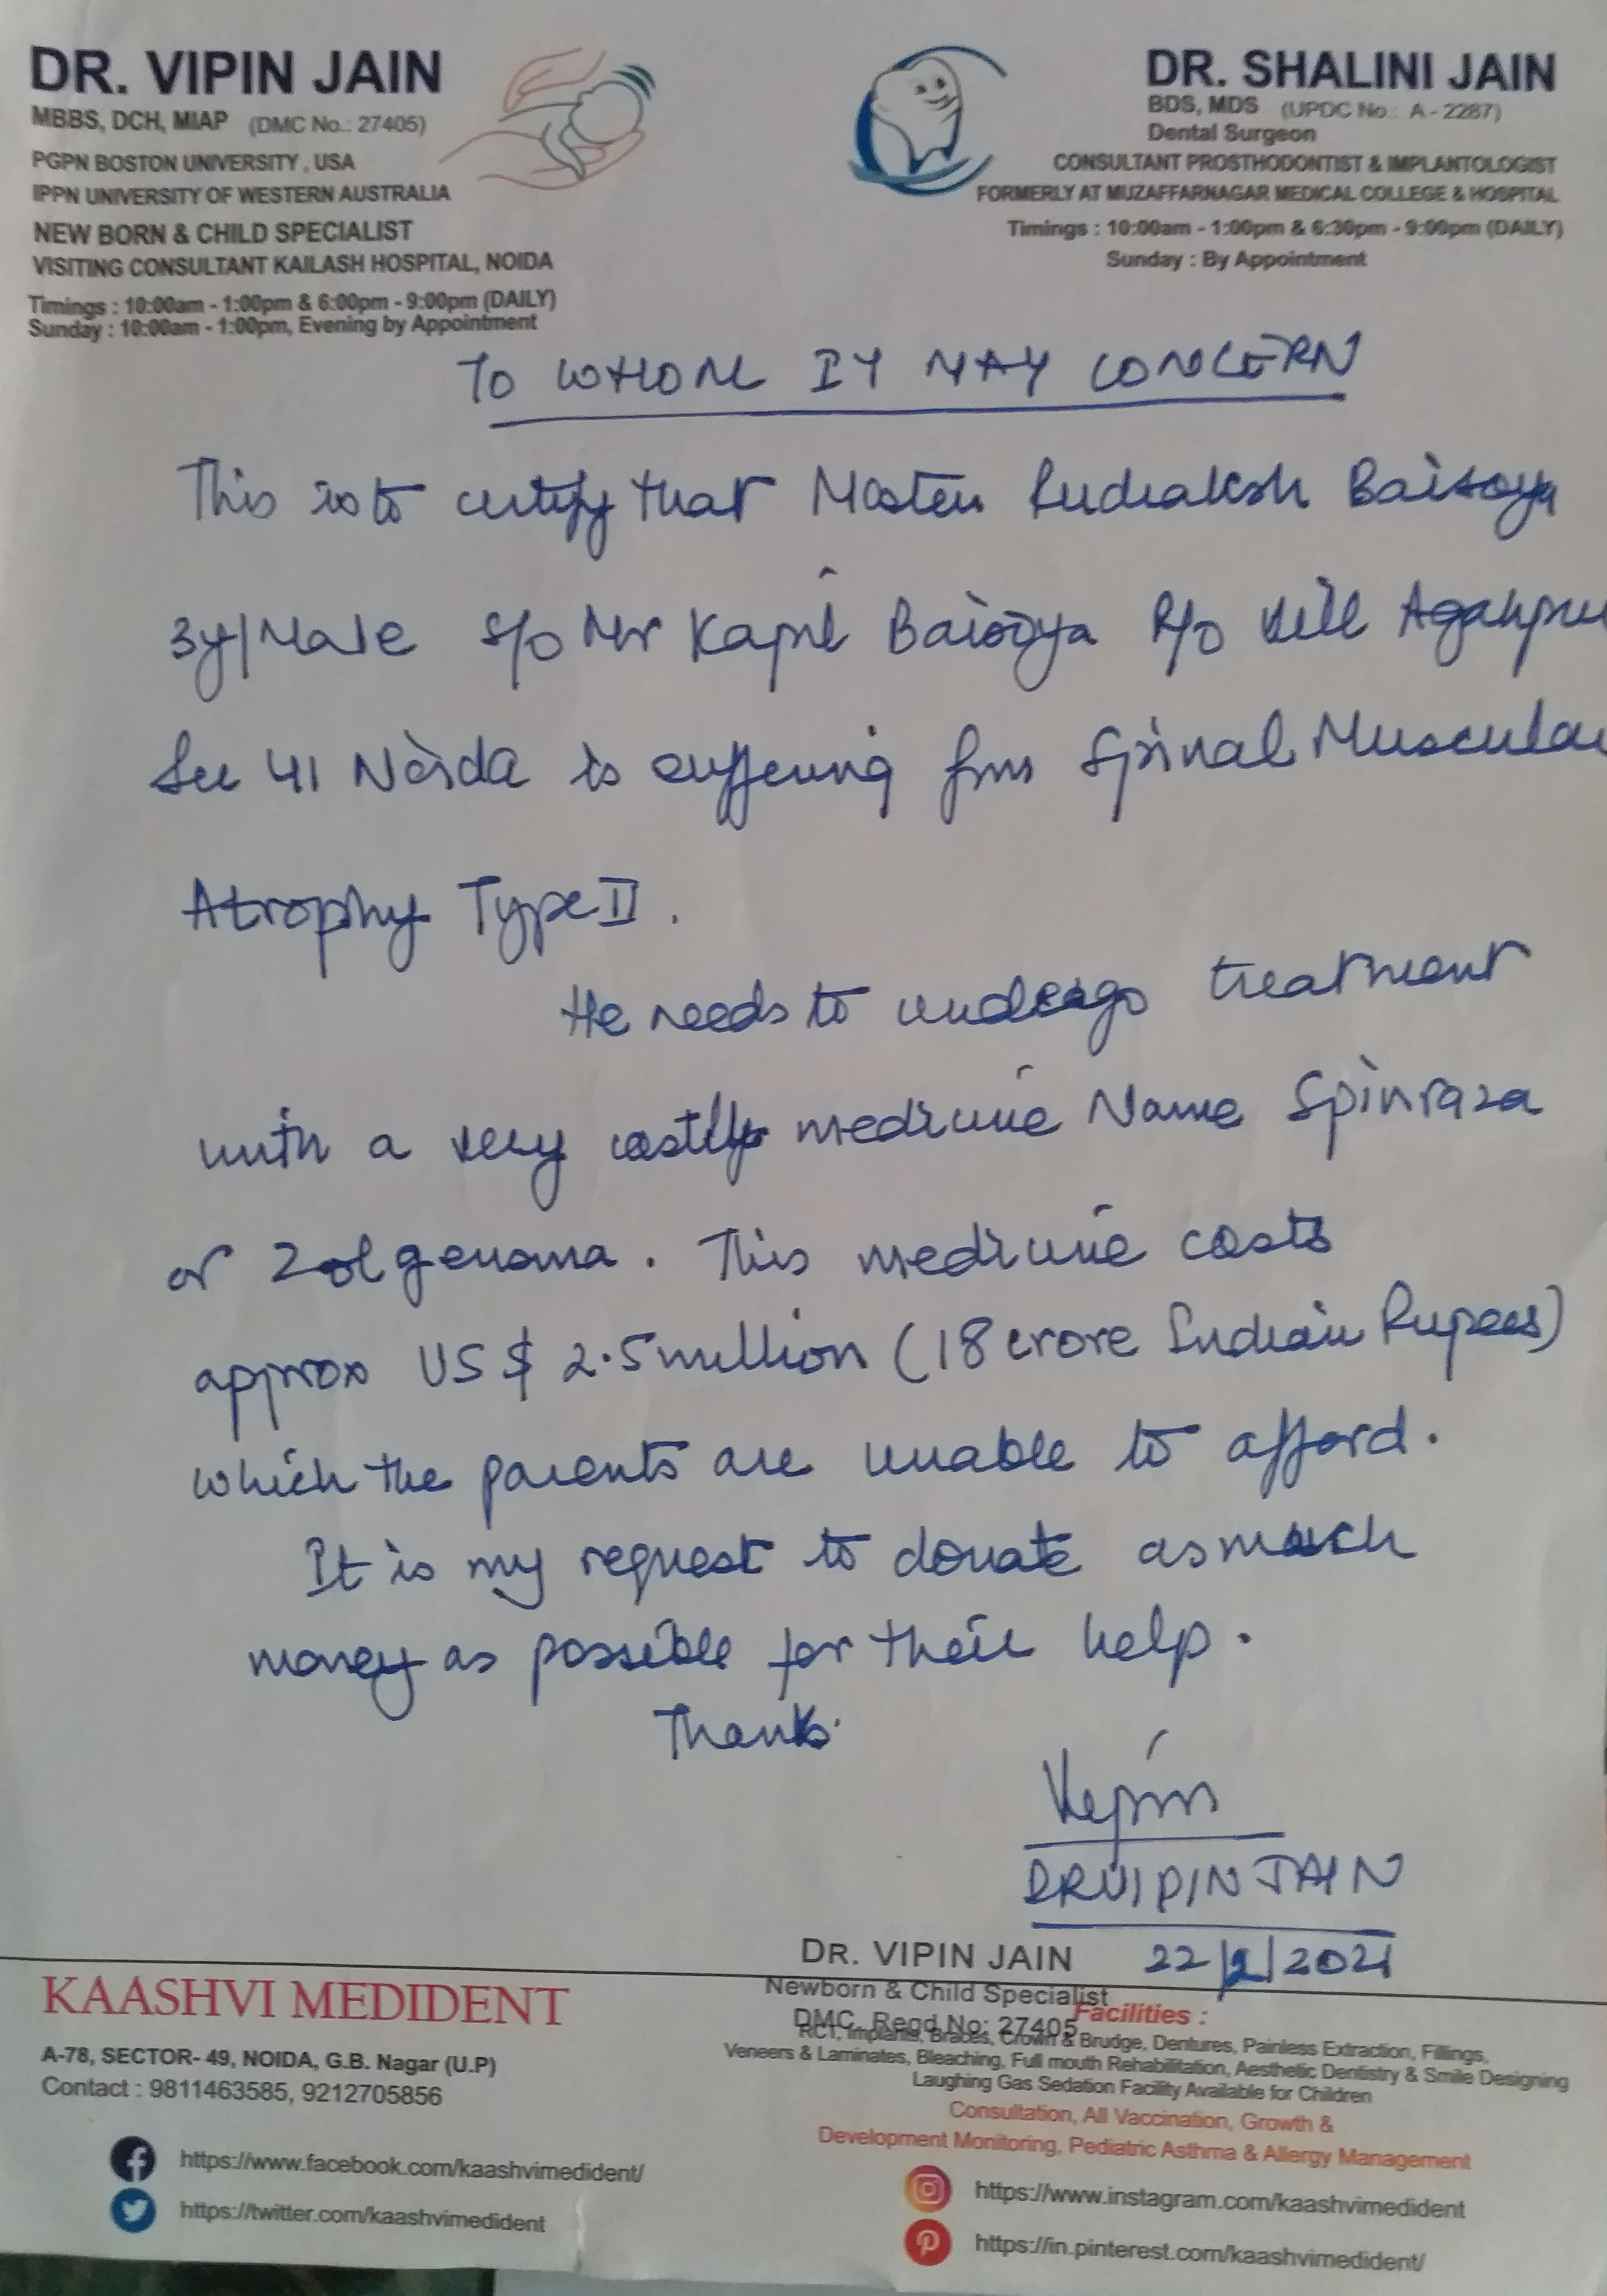 DR. VIPIN JAIN
MBBS, DCH, MIAP (DMC No.: 27405)
PGPN BOSTON UNIVERSITY, USA
IPPN UNIVERSITY OF WESTERN AUSTRALIA
NEW BORN & CHILD SPECIALIST
VISITING CONSULTANT KAILASH HOSPITAL, NOIDA
Timings : 10:00am - 1:00pm & 6:00pm - 9:00pm (DAILY)
Sunday : 10:00am - 1:00pm, Evening by Appointment
DR. SHALINI JAIN
BDS, MDS (UPDC No.: A - 2287)
Dental Surgeon
CONSULTANT PROSTHODONTIST & IMPLANTOLOGIST
FORMERLY AT MUZAFFARNAGAR MEDICAL COLLEGE & HOSPITAL
Timings : 10:00am - 1:00pm & 6:30pm - 9:00pm (DAILY)
Sunday : By Appointment
TO WHOM IT MAY CONCERN
This is to certify that Master Rudraksh Baisoya
3y/Male S/o Mr Kapil Baisoya R/o Vill Agahpur
Sec 41 Noida is suffering from Spinal Muscular
Atrophy Type II.
He needs to undergo treatment
with a very costly medicine Name Spinraza
or Zolgensma. This medicine costs
approx US $ 2.5 million (18 crore Indian Rupees)
which the parents are unable to afford.
It is my request to donate as much
money as possible for their help.
Thanks
Vipin
DR VIPIN JAIN
22/2/2021
DR. VIPIN JAIN
Newborn & Child Specialist
DMC. Regd No: 27405
KAASHVI MEDIDENT
A-78, SECTOR- 49, NOIDA, G.B. Nagar (U.P)
Contact : 9811463585, 9212705856
https://www.facebook.com/kaashvimedident/
https://twitter.com/kaashvimedident
Facilities :
RCT, Implants, Braces, Crown & Brudge, Dentures, Painless Extraction, Fillings,
Veneers & Laminates, Bleaching, Full mouth Rehabilitation, Aesthetic Dentistry & Smile Designing
Laughing Gas Sedation Facility Available for Children
Consultation, All Vaccination, Growth &
Development Monitoring, Pediatric Asthma & Allergy Management
https://www.instagram.com/kaashvimedident
https://in.pinterest.com/kaashvimedident/